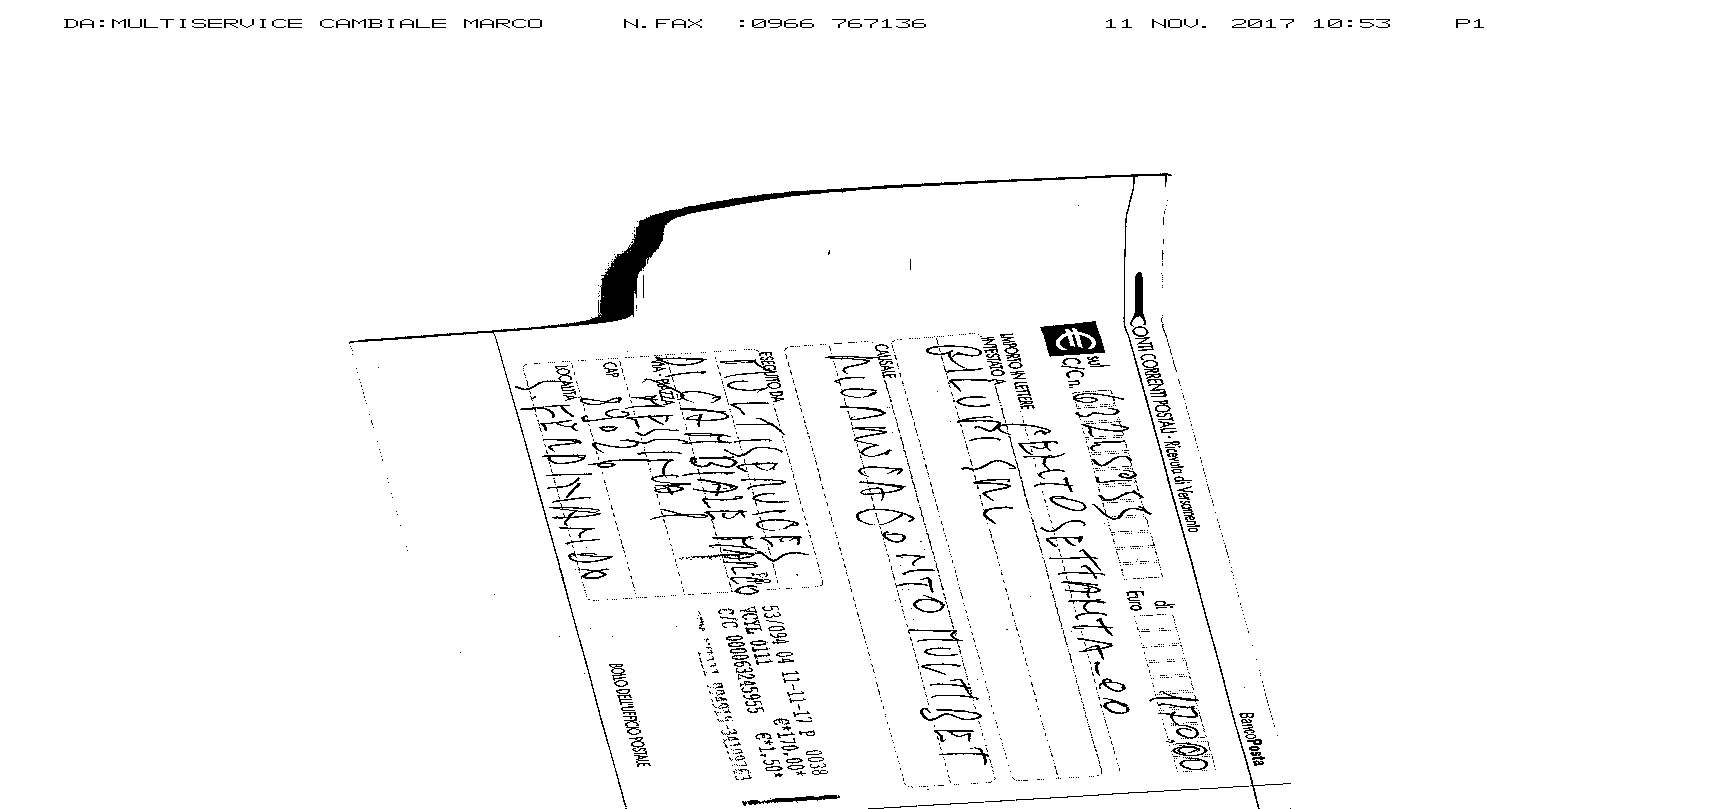 DA:MULTISERVICE CAMBIALE MARCO N.FAX :0966 767136 11 NOV. 2017 10:53 P1
CONTI CORRENTI POSTALI - Ricevuta di Versamento BancoPosta
€ sul C/C n. 63245955 di Euro 170,00
IMPORTO IN LETTERE CENTOSETTANTA-00
INTESTATO A
SNC
CAUSALE
RICARICA CONTO MULTIBET
ESEGUITO DA
MULTISERVICES
DI CAMBIALE MARCO
VIA - PIAZZA
MESSINA 1
CAP 89026
LOCALITÀ
S. FERDINANDO
53/094 04 11-11-17 P 0038
VCYL 0111 €*170,00*
C/C 000063245955 €*1,50*
BOLLO DELL'UFFICIO POSTALE